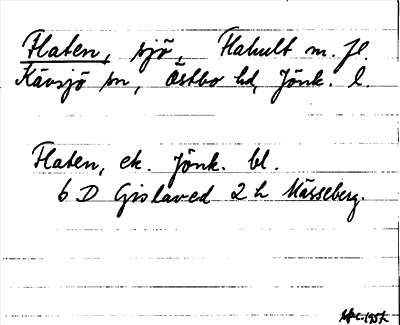 Flaten, sjö, Flahult m. fl.
Kävsjö sn, Östbo hd, Jönk. l.
Flaten, ek. Jönk. bl.
6 D Gislaved 2 h Mårseberg.